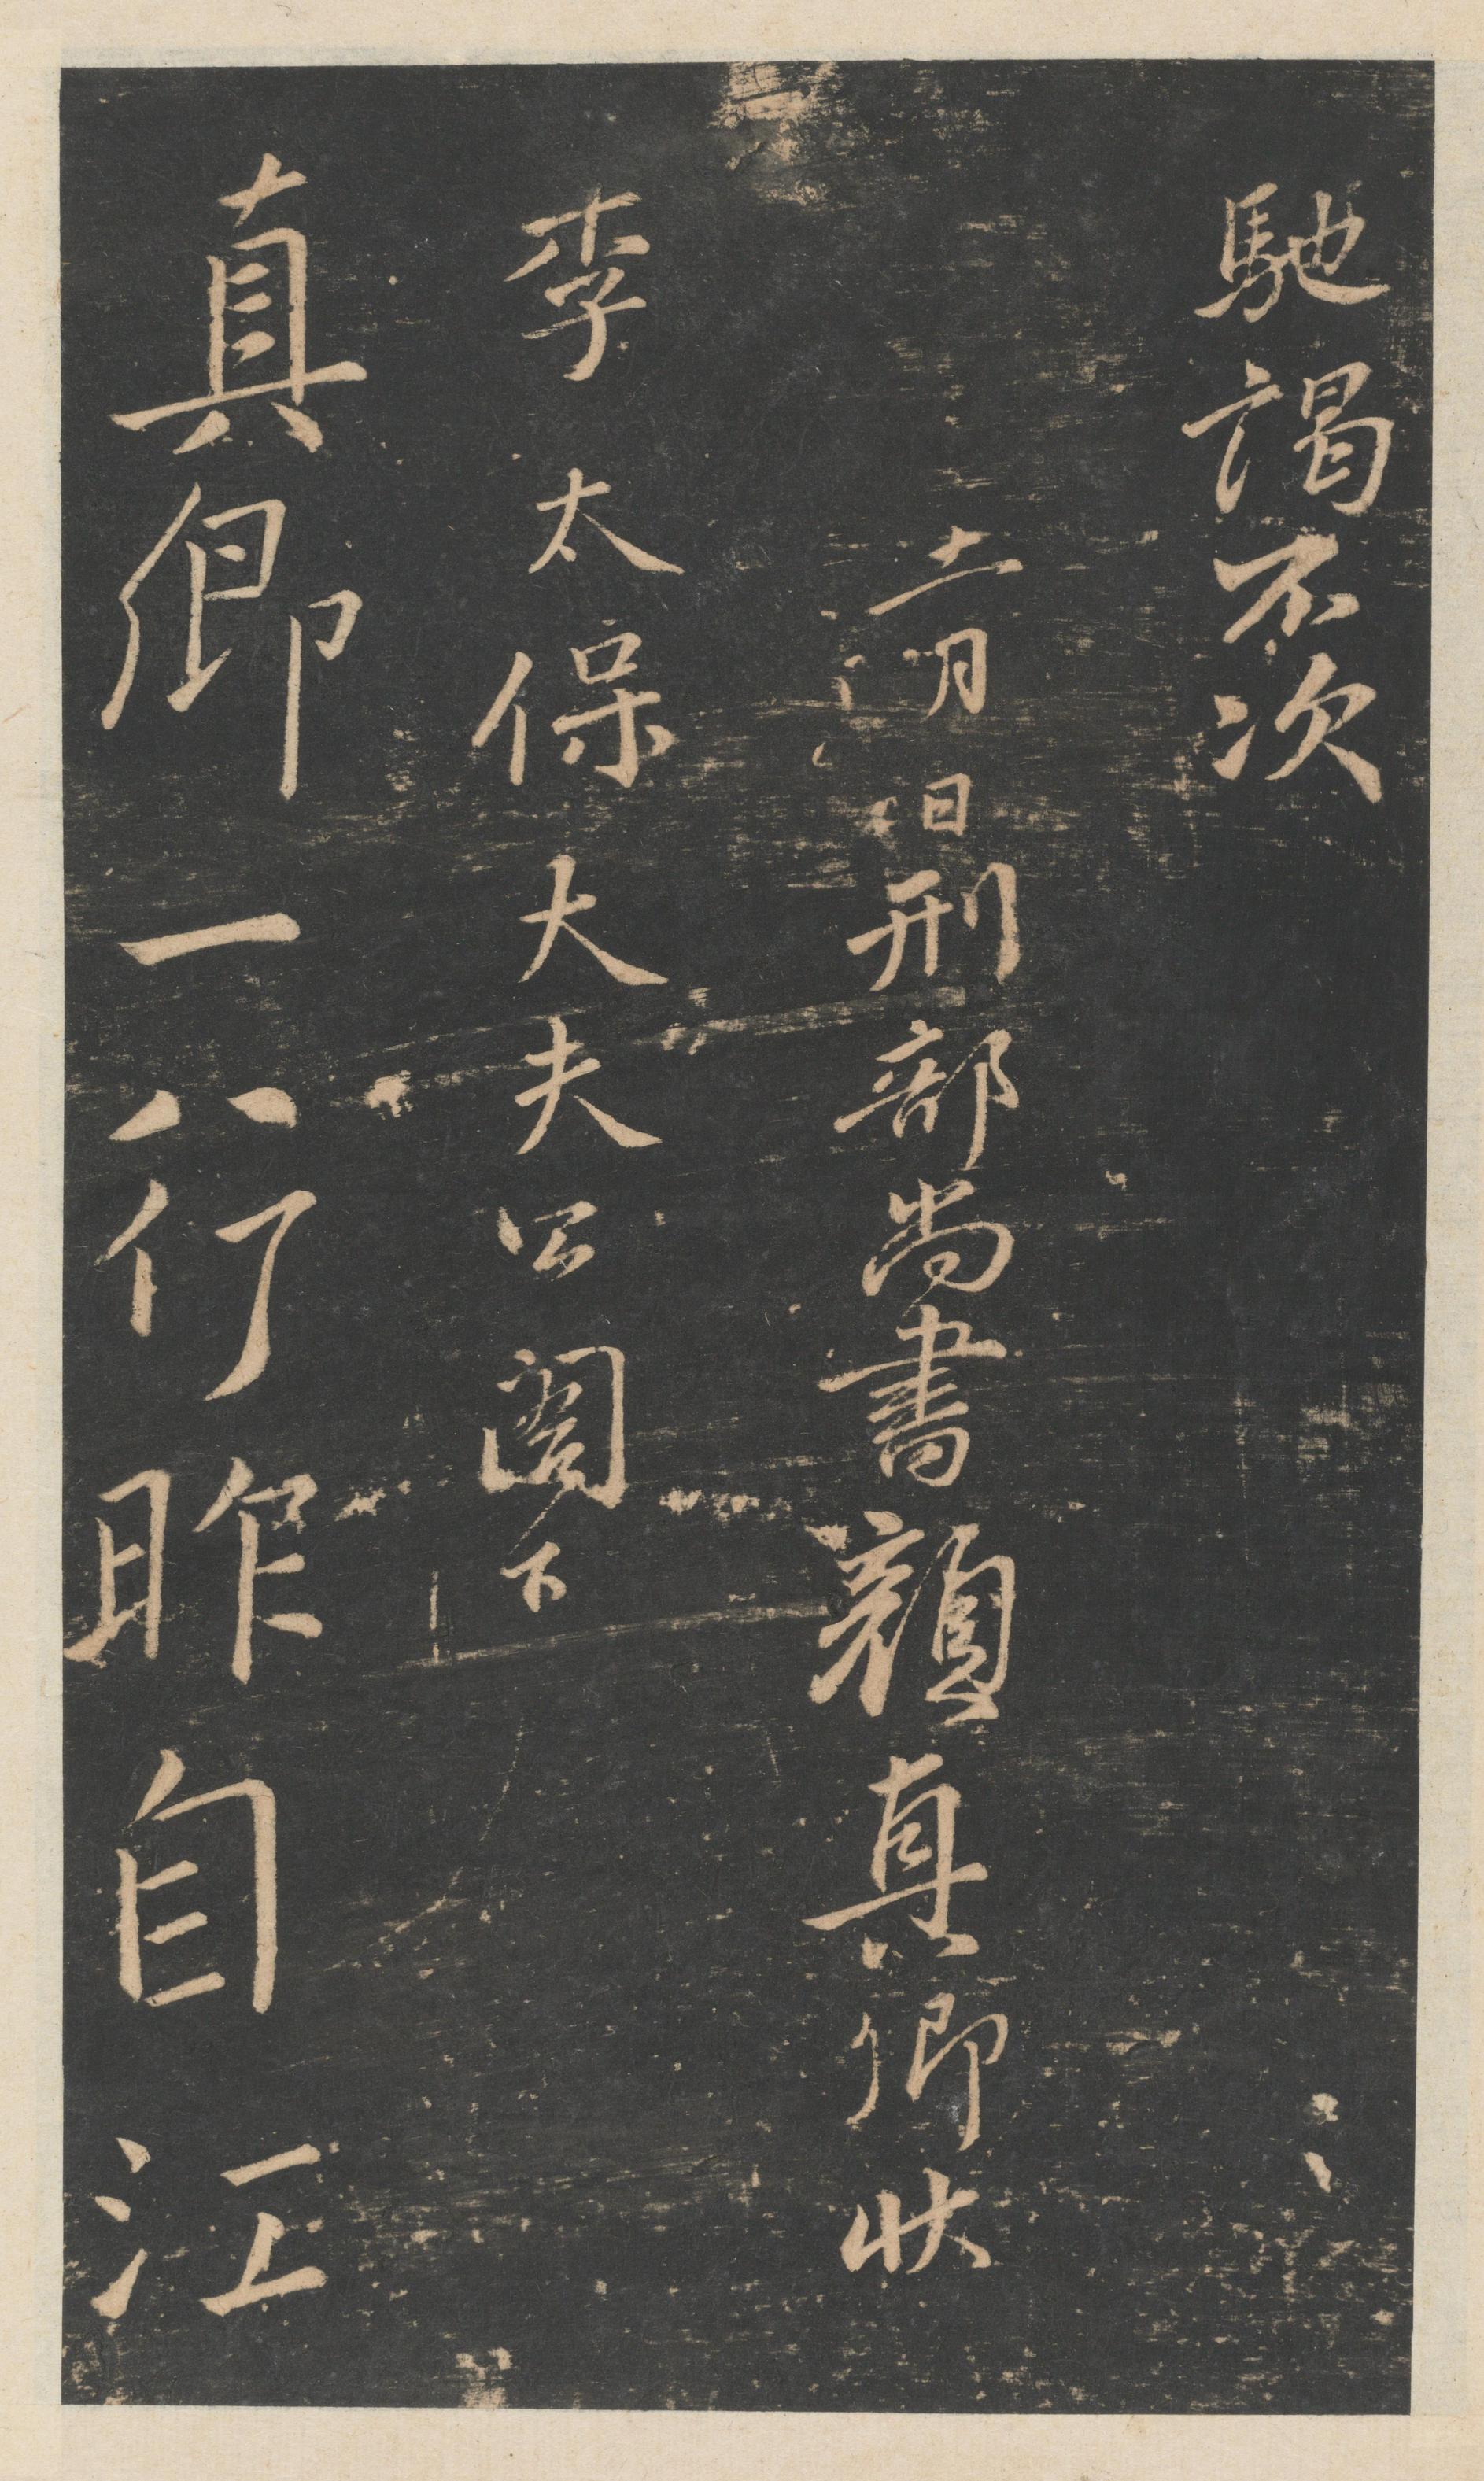 馳謁不次
十一月日刑部尚書顏真卿狀
李太保大夫公閤下
真卿一八行昨自江